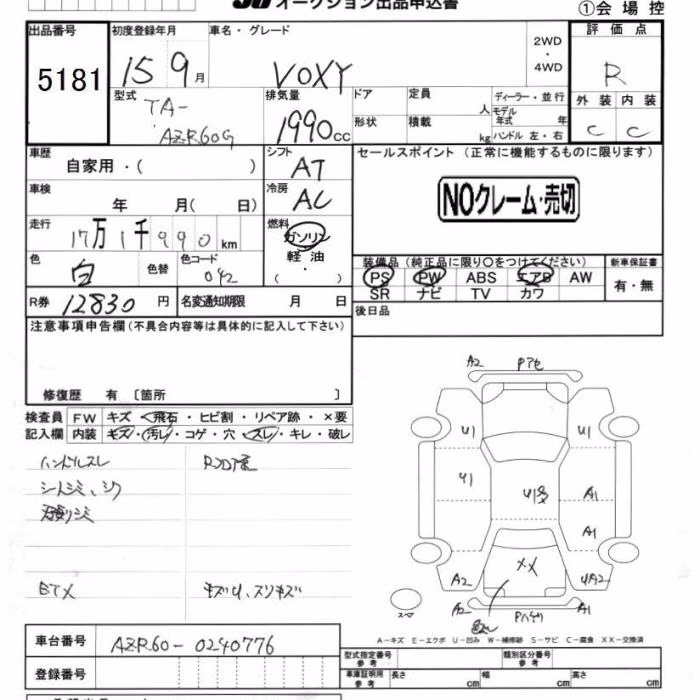 オークション出品申込書
①会場控
出品番号 初度登録年月 車名・グレード 2WD・4WD 評価点
5181 15 9月 VOXY R
型式 排気量 ドア 定員 人 ディーラー・並行 外装 内装
TA- AZR60G 1990cc 形状 積載 kg モデル年式 年 ハンドル 左・右 C C
車歴 自家用・( ) シフト AT セールスポイント (正常に機能するものに限ります)
車検 年 月( 日) 冷房 AC NOクレーム・売切
走行 17万1千990km 燃料 ガソリン 軽油 ・( )
色 白 色替 色コード 042
装備品(純正品に限り〇をつけてください) 新車保証書
PS PW ABS エアB AW 有・無
SR ナビ TV カワ
R券 12830円 名変通知期限 月 日 後日品
注意事項申告欄(不具合内容等は具体的に記入して下さい)
修復歴 有 〔箇所 〕
検査員 FW キズ・飛石・ヒビ割・リペア跡・×要
記入欄 内装 キズ・汚レ・コゲ・穴・スレ・キレ・破レ
ハンドルスレ
シートシミ、シワ
キズU、スリキズ
A2
U1 U1
U1 A1
A1
××
A2 UA2
A2 A1
A-キズ E-エクボ U-凹み W-補修跡 S-サビ C-腐食 XX-交換済
車台番号 AZR60-0240776
型式指定番号 参考 類別区分番号 参考
登録番号 車庫証明用 参考 長さ cm 幅 cm 高さ cm